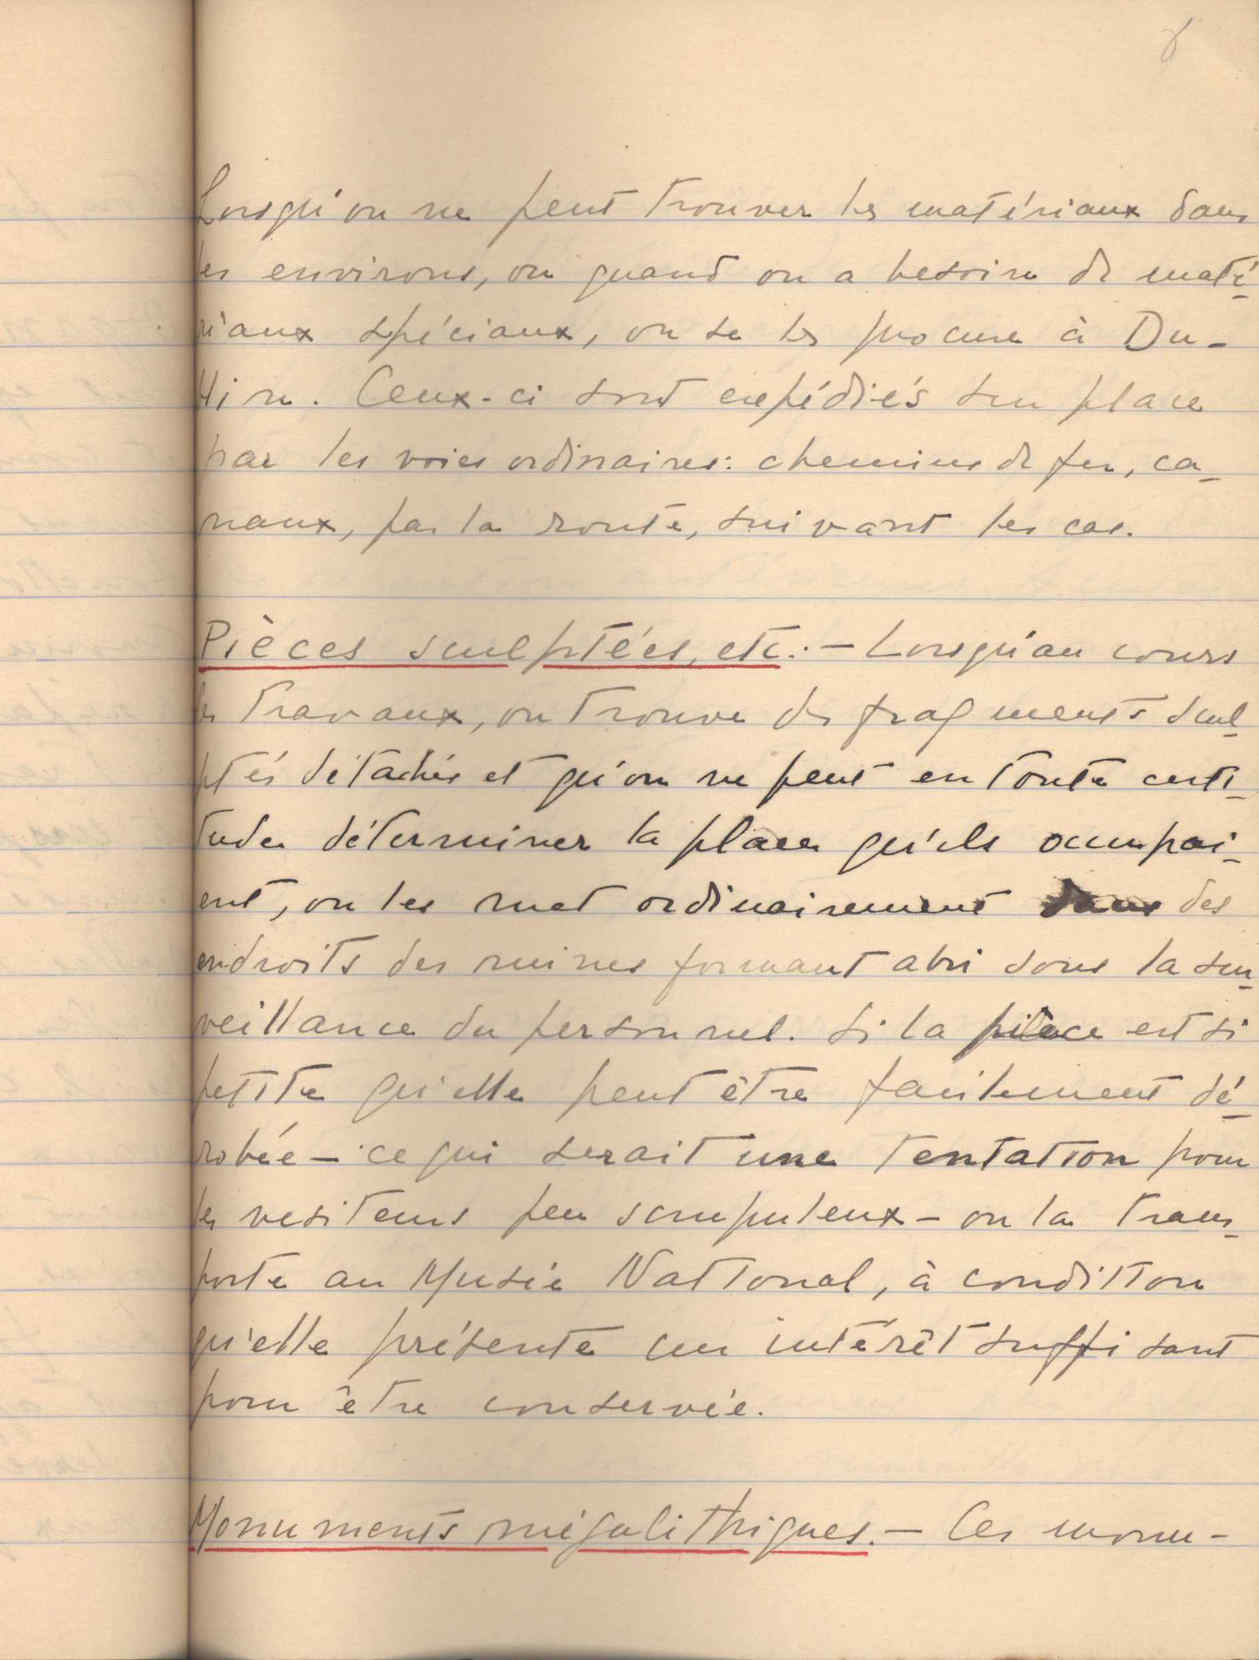 8
Lorsqu'on ne peut trouver les matériaux dans
les environs, ou quand on a besoin de maté-
riaux spéciaux, on se les procure à Du-
blin. Ceux-ci sont expédiés sur place
par les voies ordinaires: chemins de fer, ca-
naux, par la route, suivant les cas.
Pièces sculptées, etc. :— Lorsqu'au cours
des travaux, on trouve des fragments scul-
ptés détachés et qu'on ne peut en toute certi-
tude déterminer la place qu'ils occupai-
ent, on les met ordinairement dans des
endroits des ruines formant abri sous la sur-
veillance du personnel. Si la pièce est si
petite qu'elle peut être facilement dé-
robée — ce qui serait une tentation pour
les visiteurs peu scrupuleux — on la trans-
porte au Musée National, à condition
qu'elle présente un intérêt suffisant
pour être conservée.
Monuments mégalithiques. — Ces monu-